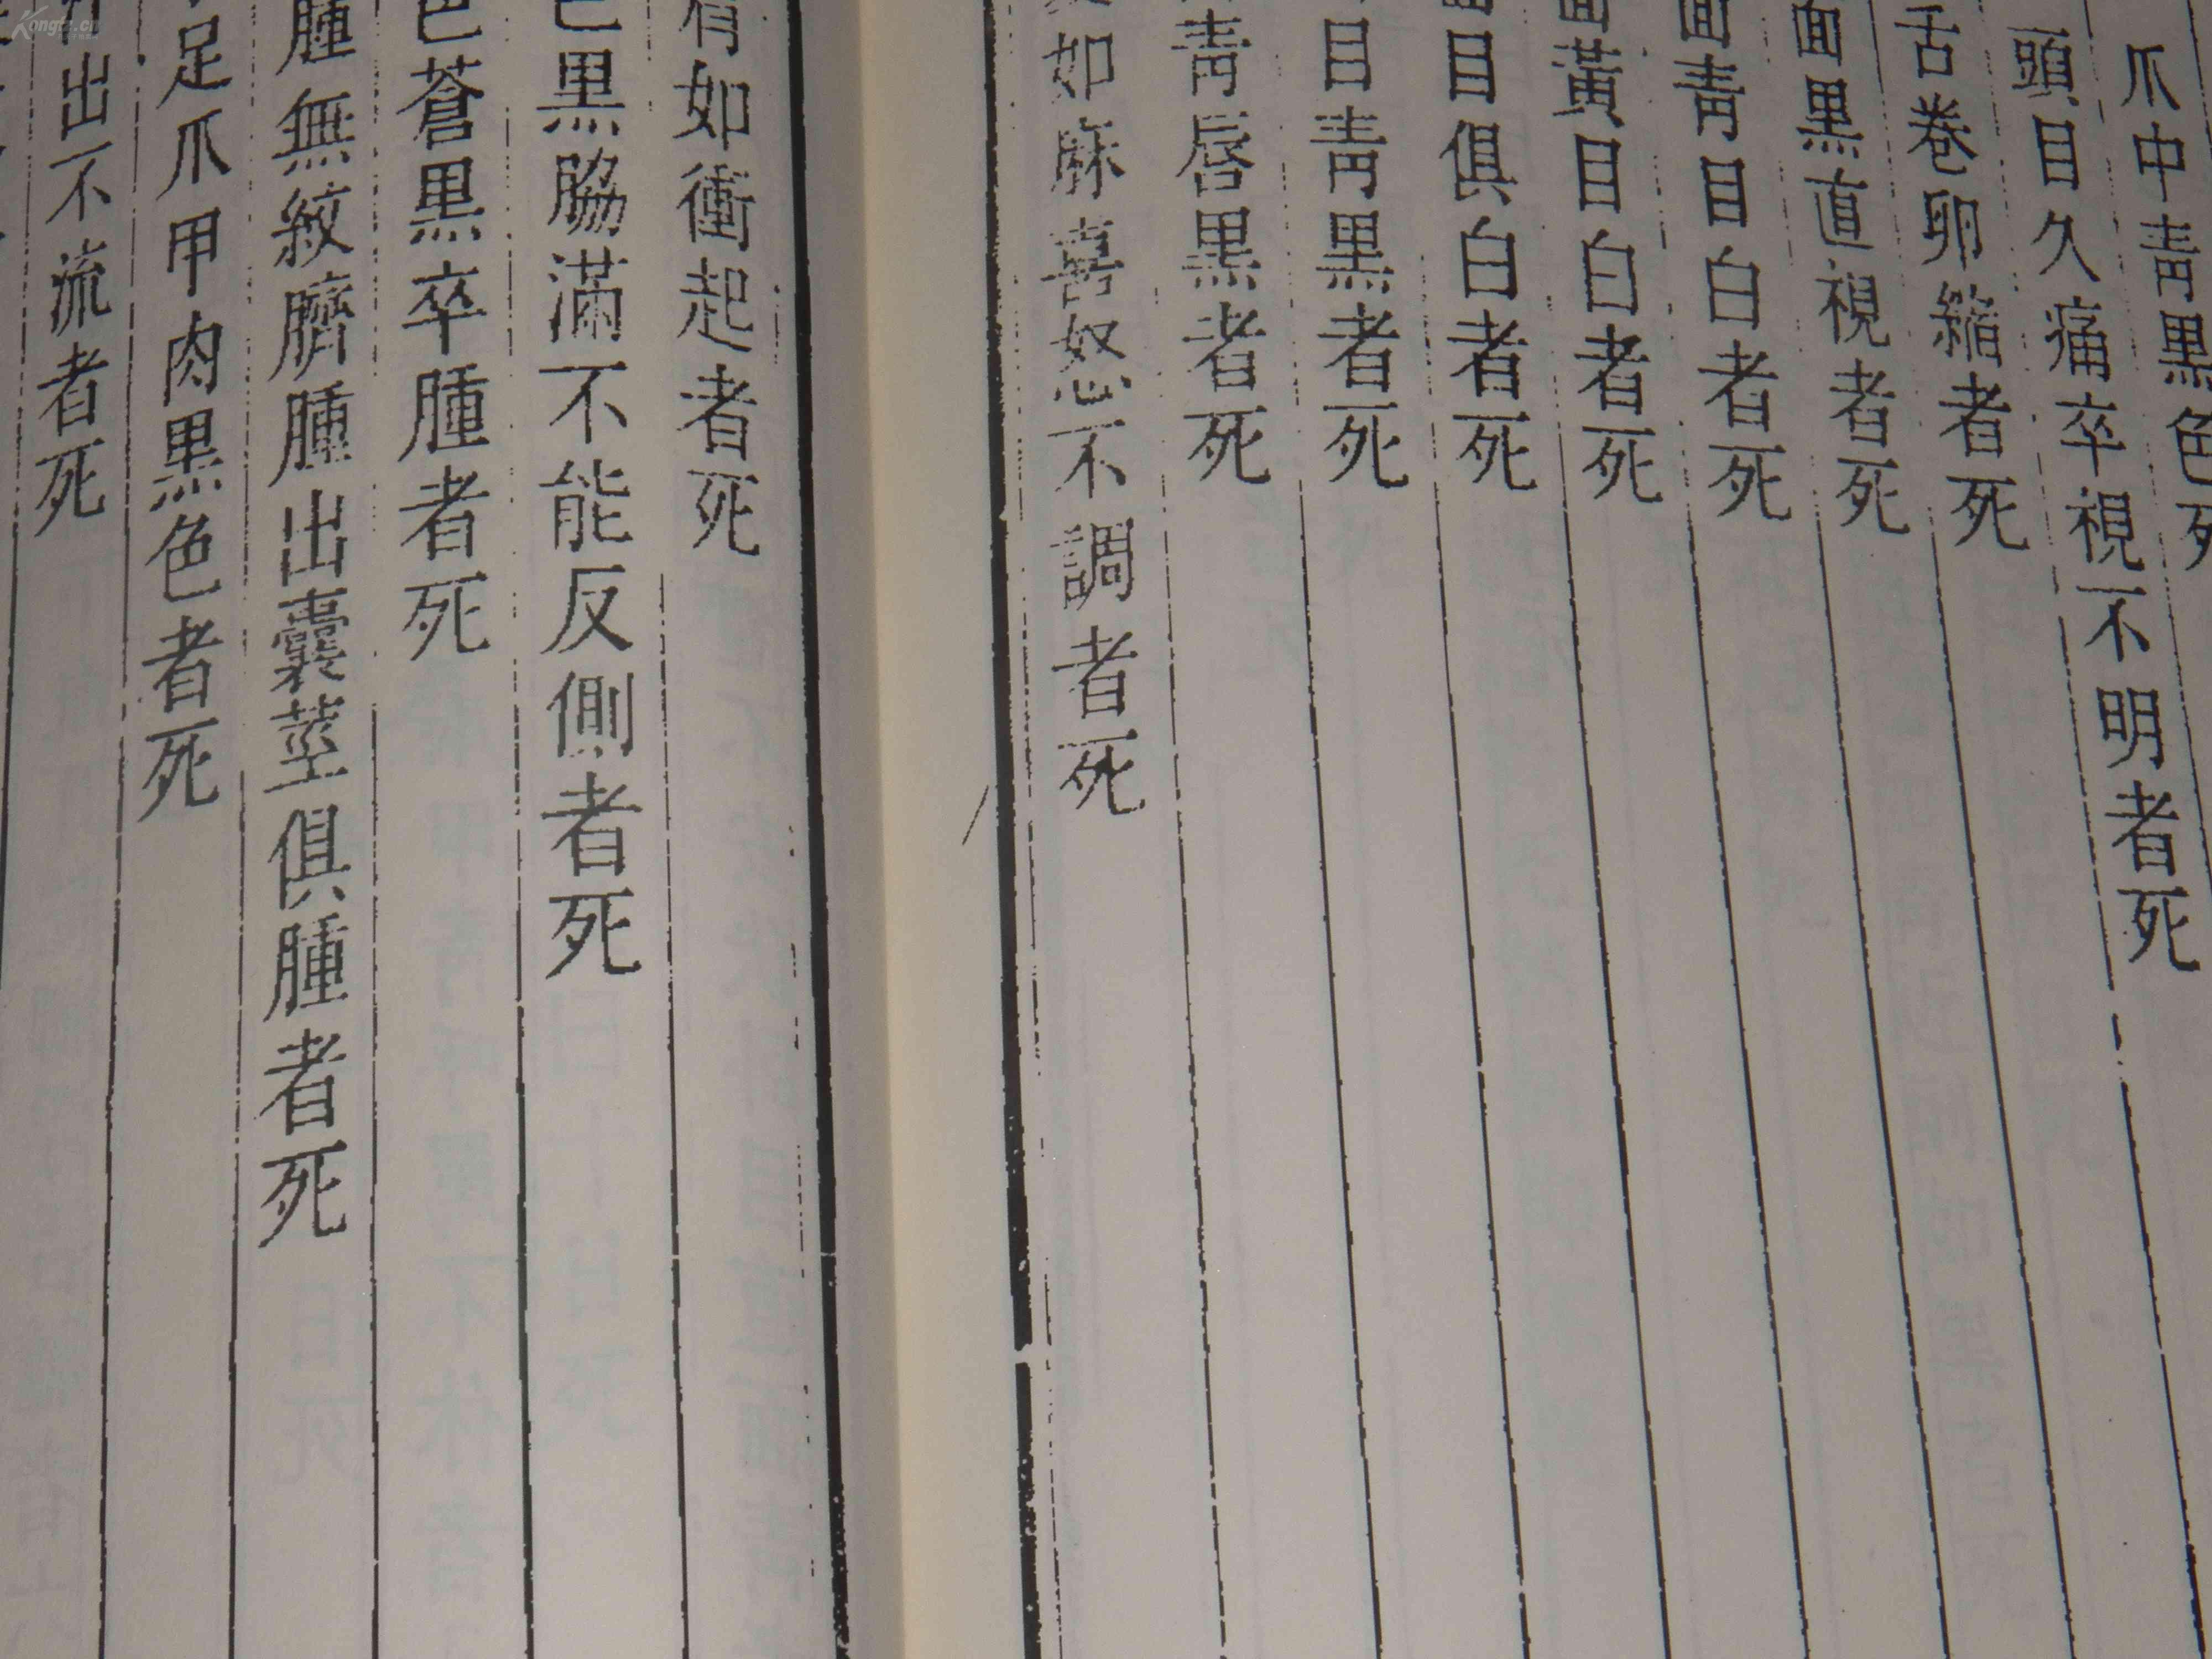 爪中青黑色死
頭目久痛卒視不明者死
舌卷卵縮者死
面黑直視者死
面青目白者死
面黃目白者死
面目俱白者死
目青黑者死
青唇黑者死
如麻喜怒不調者死
有如衝起者死
黑脇滿不能反側者死
色蒼黑卒腫者死
腫無紋臍腫出囊莖俱腫者死
足爪甲肉黑色者死
出不流者死
Kongfz.cn